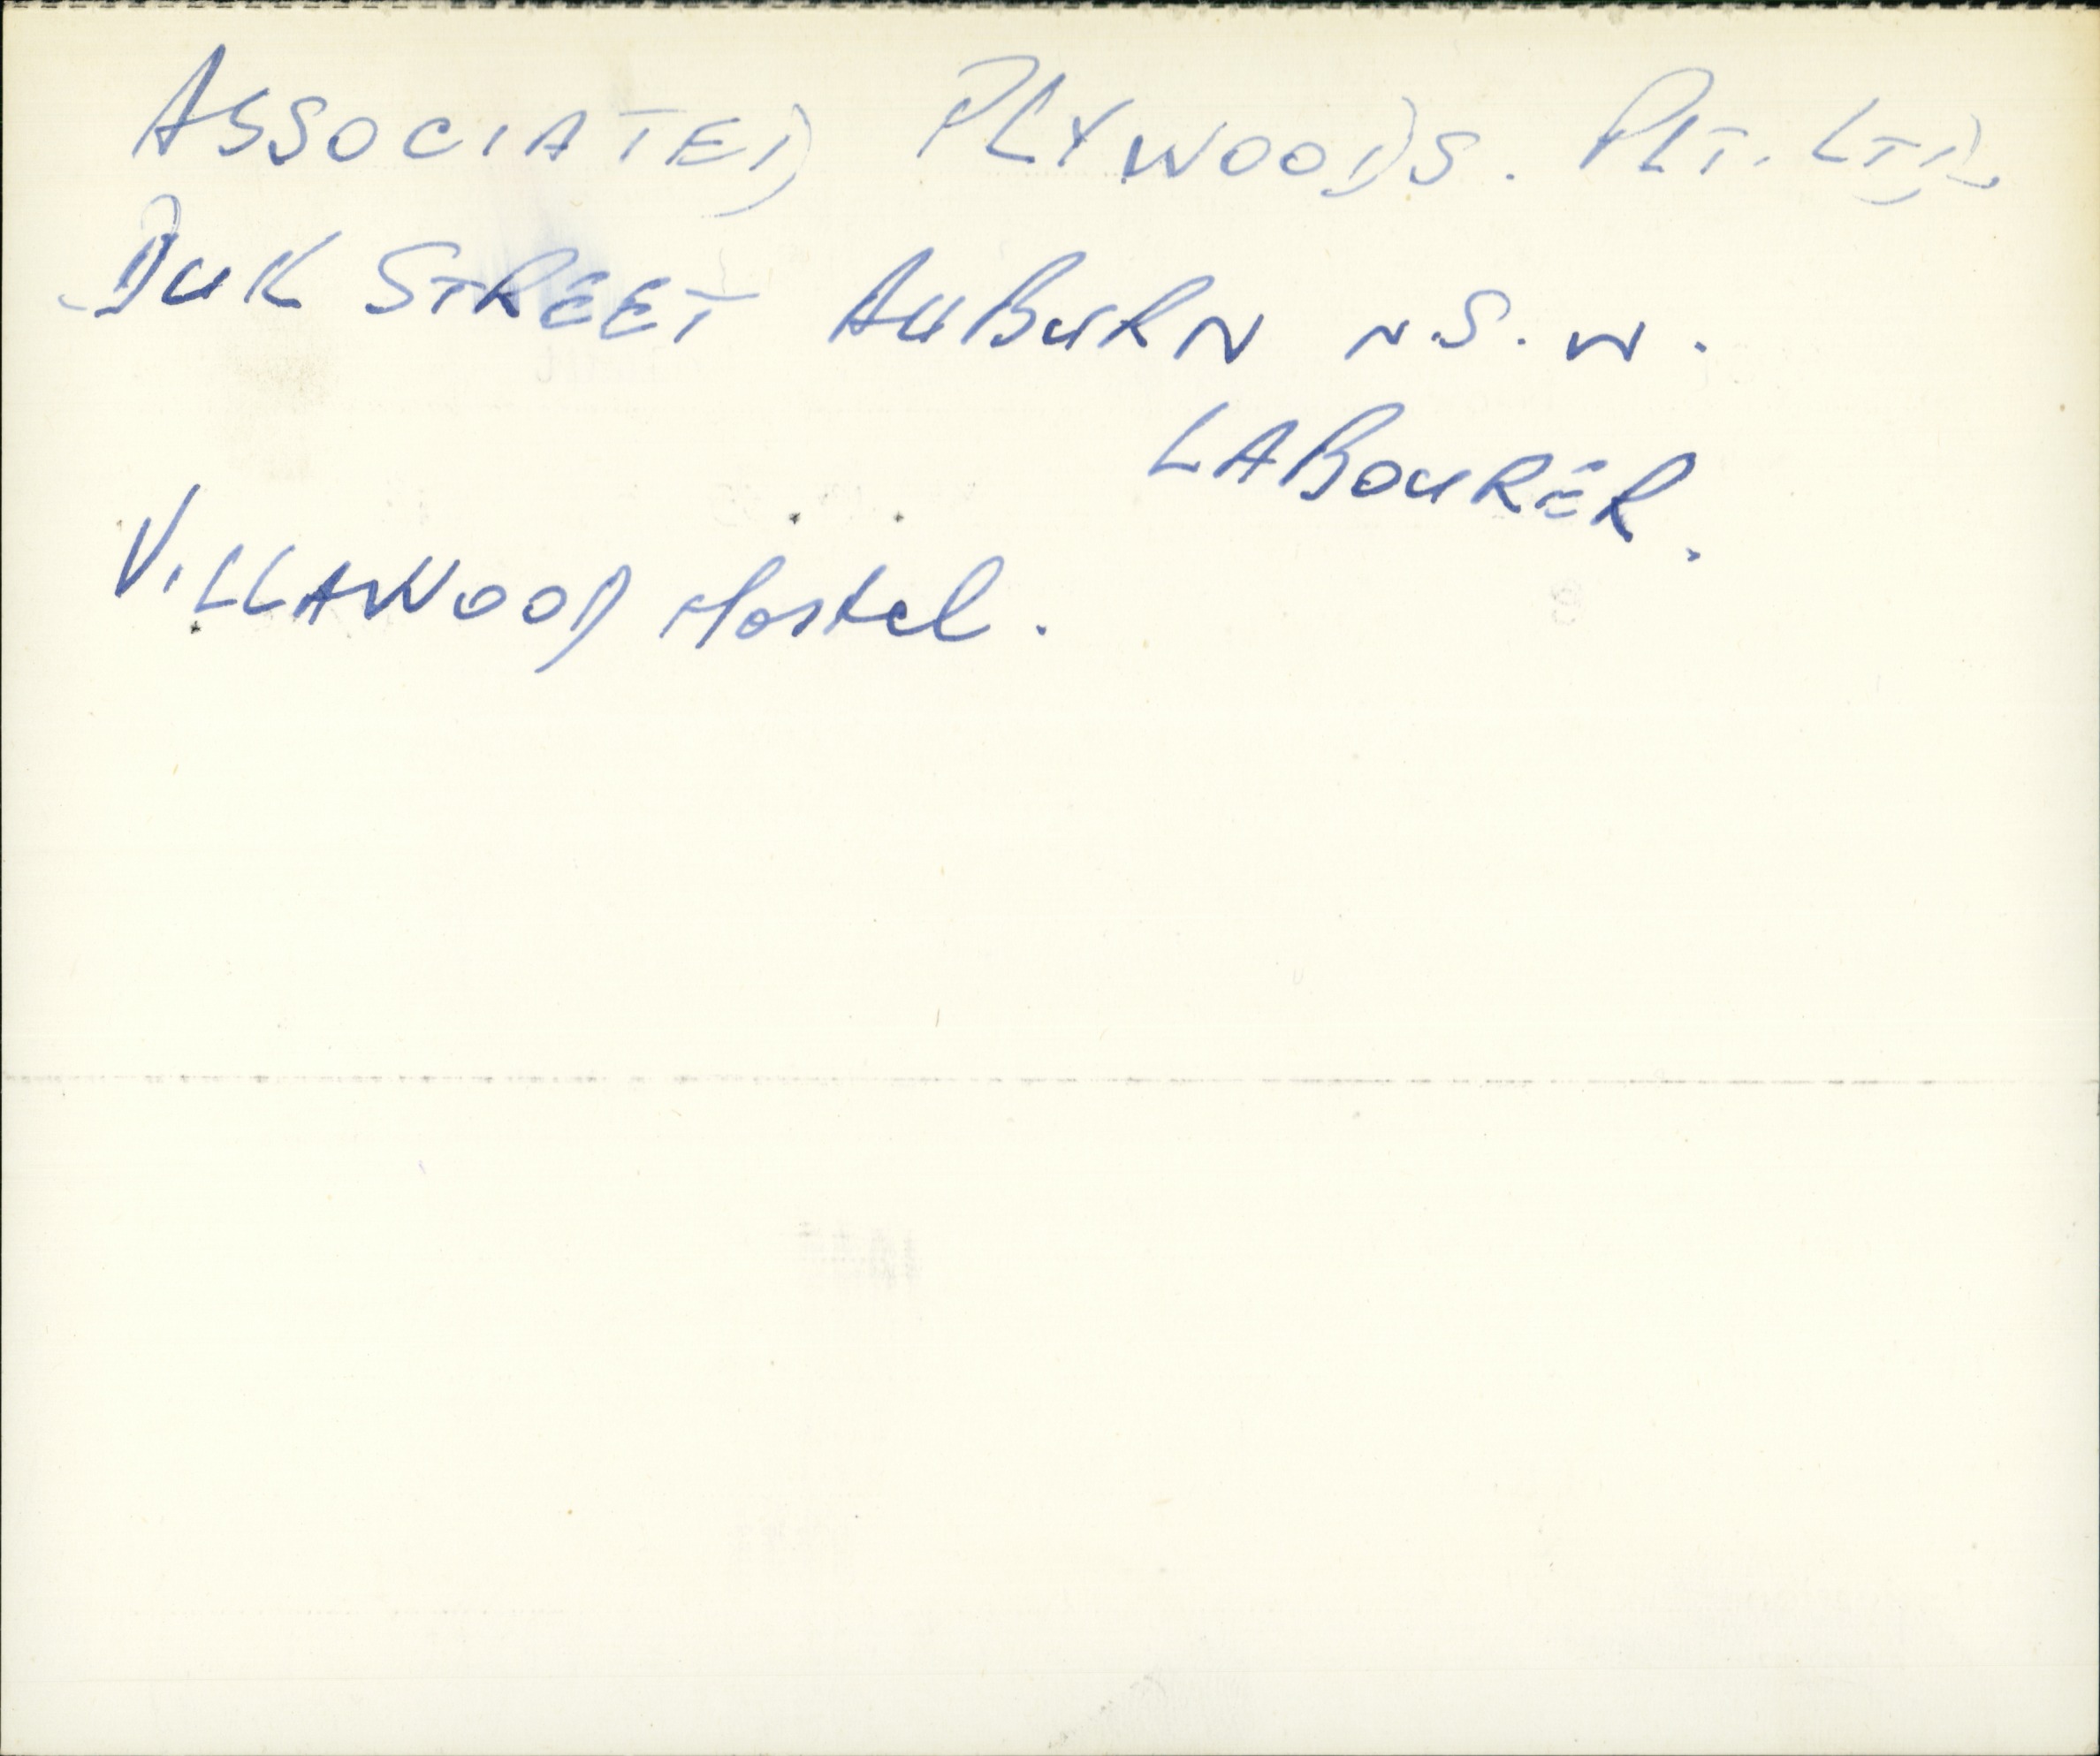 ASSOCIATED PLYWOODS. PLT. LTD.
DUK STREET AUBURN N.S.W.
LABOURER.
VILLAWOOD Hostel.